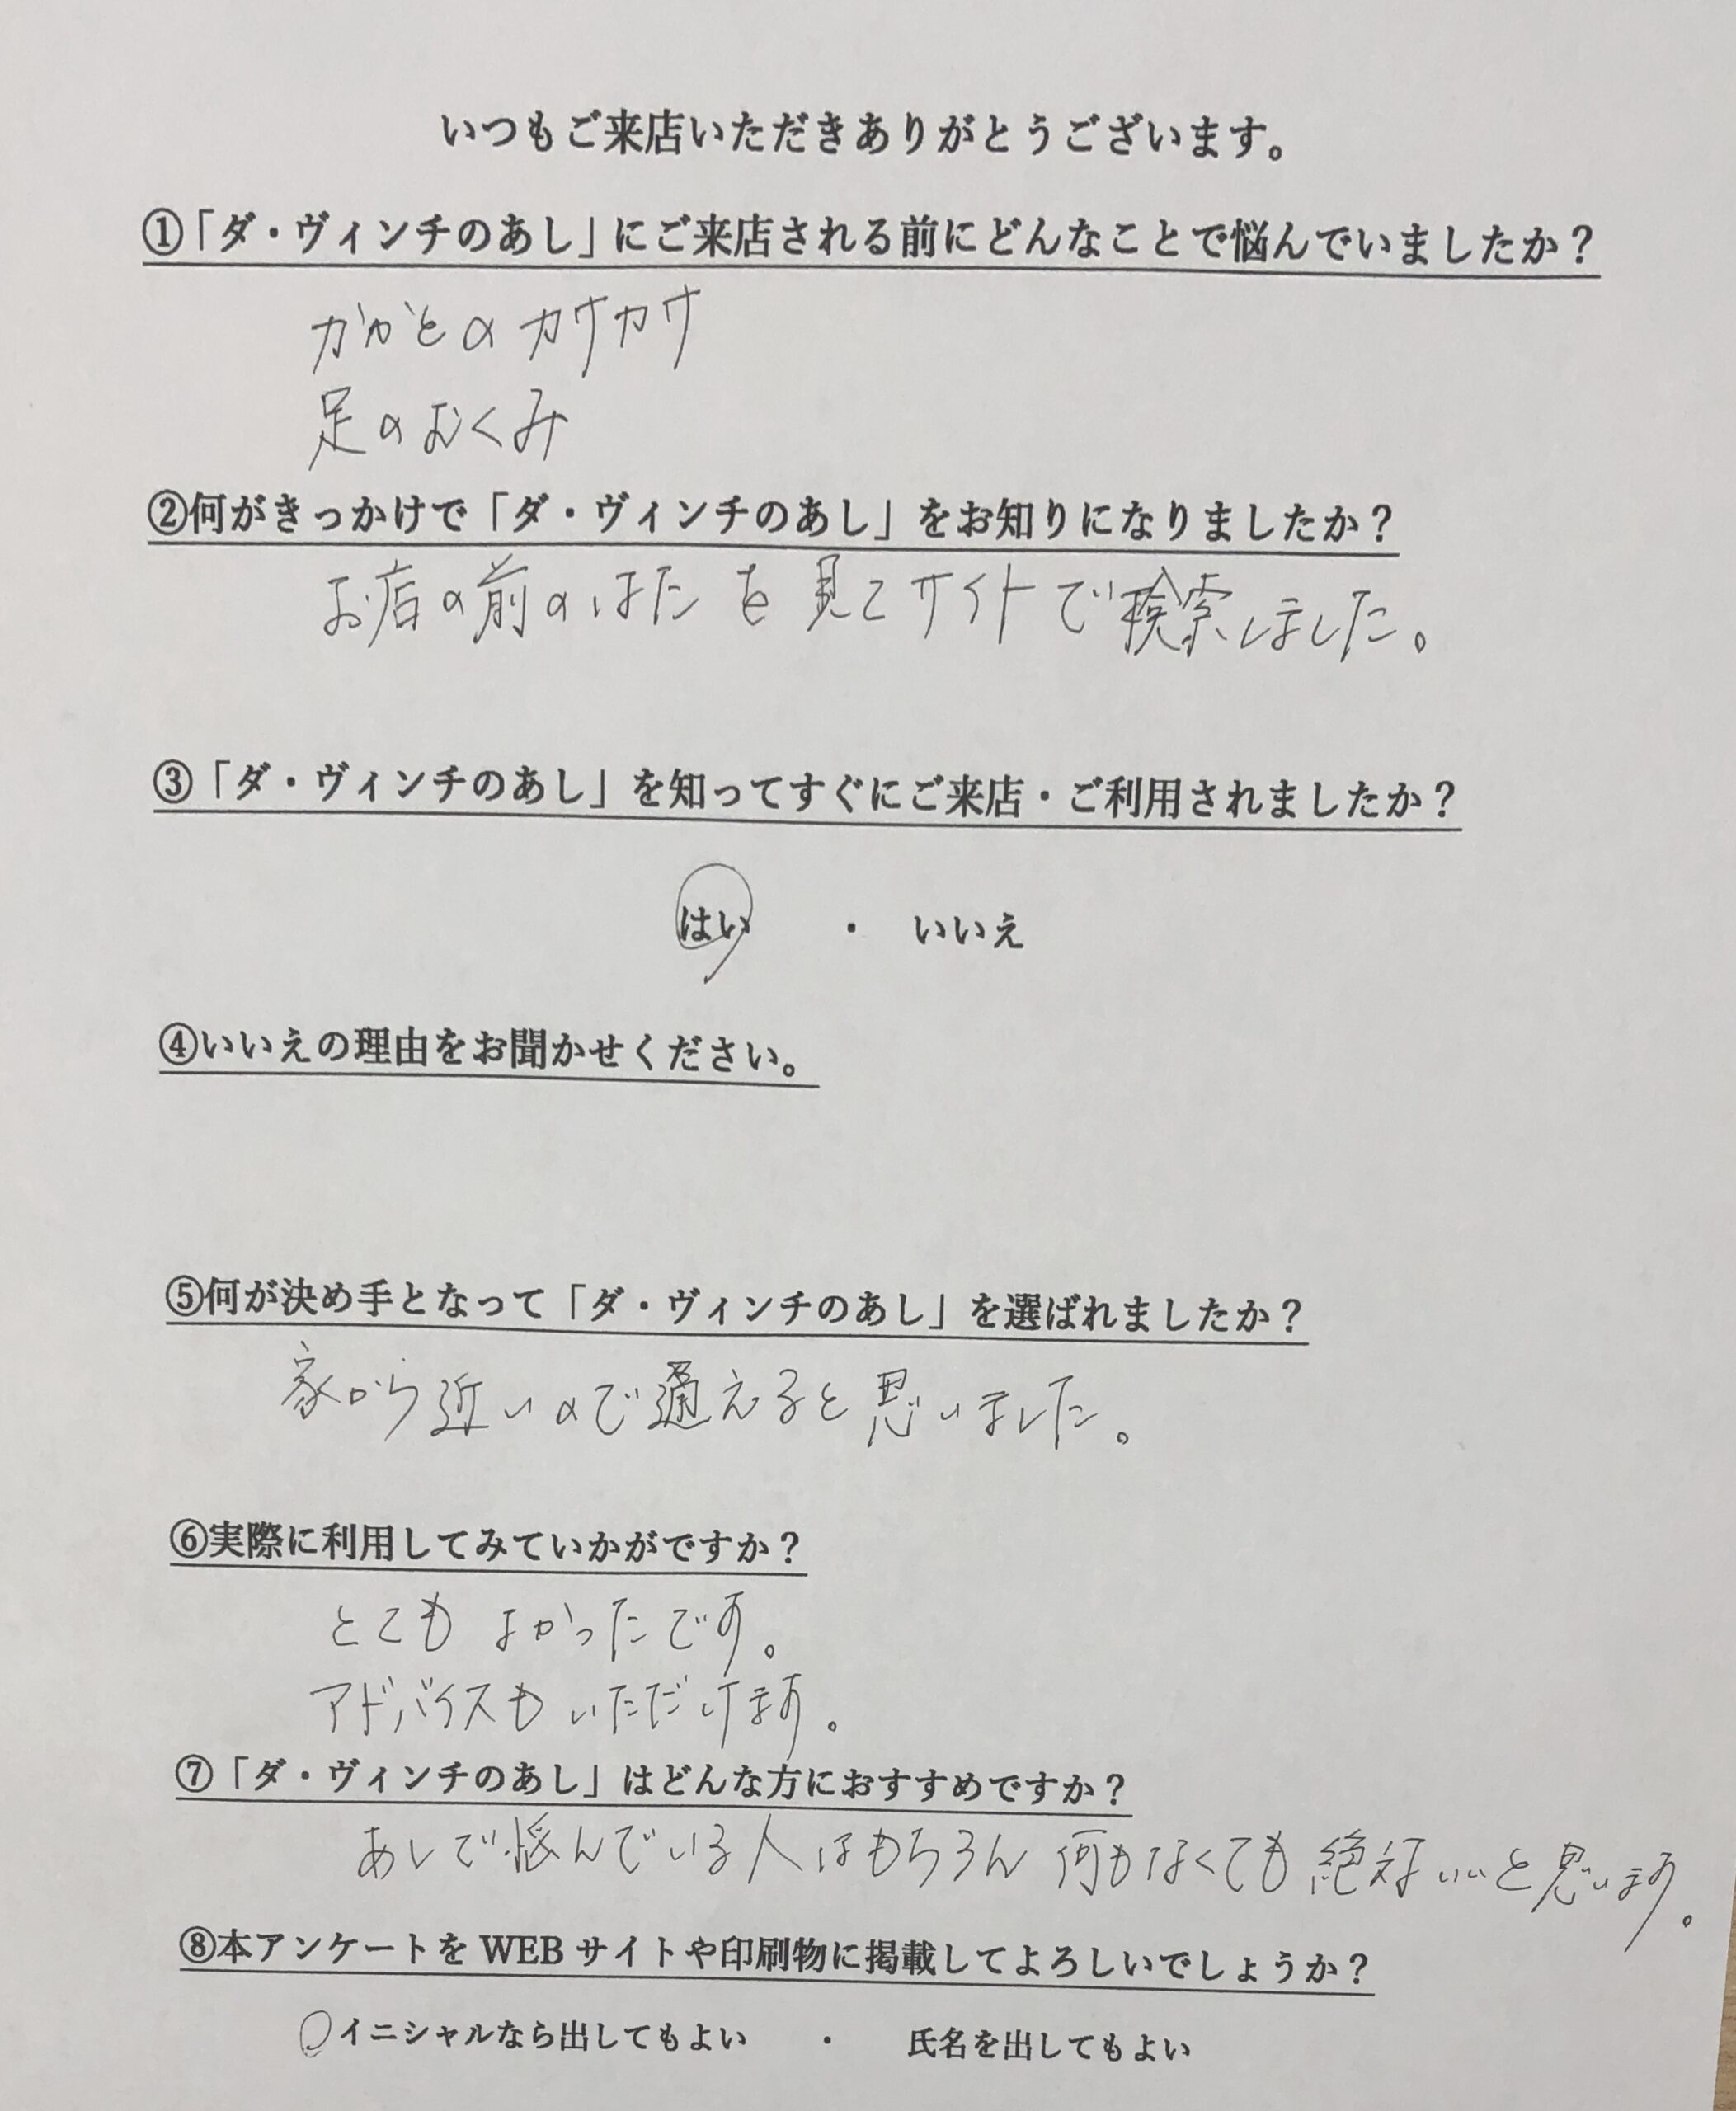 いつもご来店いただきありがとうございます。
①「ダ・ヴィンチのあし」にご来店される前にどんなことで悩んでいましたか？
かかとのカサカサ
足のむくみ
②何がきっかけで「ダ・ヴィンチのあし」をお知りになりましたか？
お店の前のはたを見てサイトで検索しました。
③「ダ・ヴィンチのあし」を知ってすぐにご来店・ご利用されましたか？
はい ・ いいえ
④いいえの理由をお聞かせください。
⑤何が決め手となって「ダ・ヴィンチのあし」を選ばれましたか？
家から近いので通えると思いました。
⑥実際に利用してみていかがですか？
とてもよかったです。
アドバイスもいただけます。
⑦「ダ・ヴィンチのあし」はどんな方におすすめですか？
あしで悩んでいる人はもちろん何もなくても絶対いいと思います。
⑧本アンケートをWEBサイトや印刷物に掲載してよろしいでしょうか？
○イニシャルなら出してもよい ・ 氏名を出してもよい